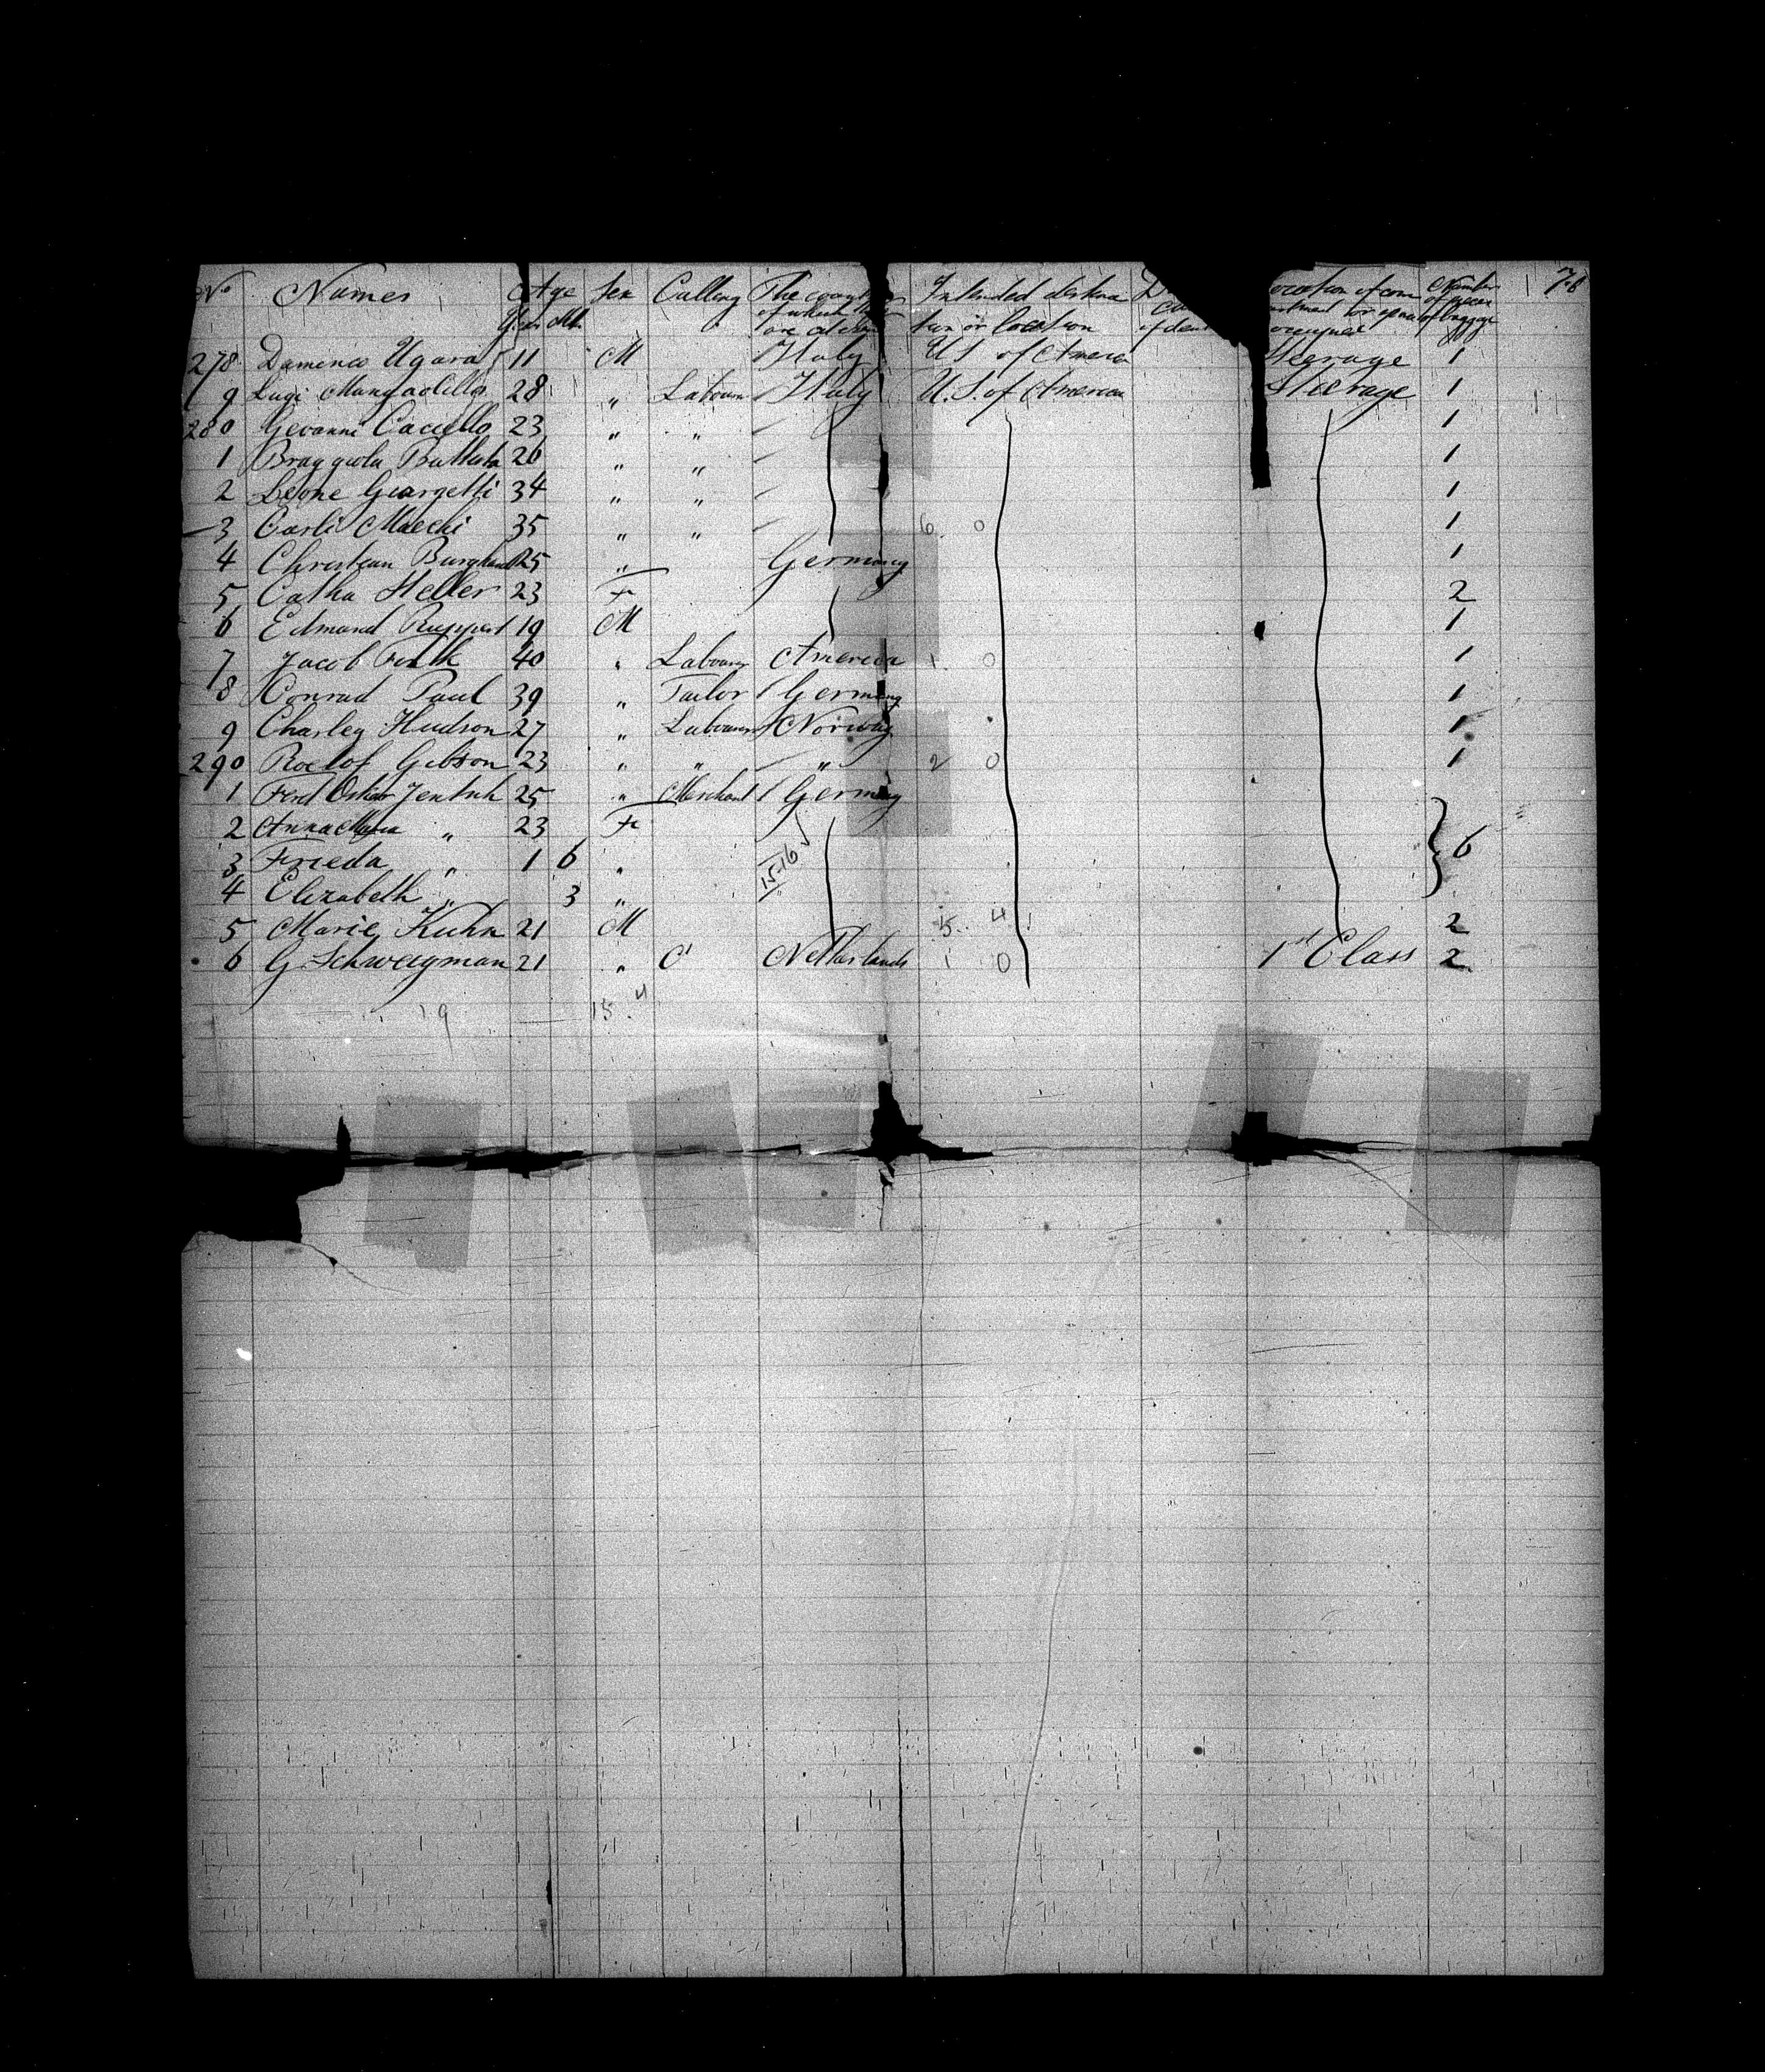 No Names Age Sex Calling The country Intended destina Location of com Number 7-6
Years Mth of which they tion or location of pieces
are citizens occupied of luggage
278 Domenico Ugara 11 M Italy U.S. of America Steerage 1
9 Luigi 28 " Labourer Italy U.S. of America Steerage 1
280 Gevanni Caciello 23 " " 1
1 Braggiola Battista 26 " " 1
2 Leone Giorgetti 34 " " 1
3 Carli Macchi 35 " " 6 0 1
4 Christian 25 " Germany 1
5 Catha Heller 23 F 2
6 Edmund Ruppert 19 M 1
7 Jacob 40 " Labourer America 1 0 1
8 Conrad Paul 39 " Tailor Germany 1
9 Charley Hudson 27 " Labourer Norway 1
290 Roelof Gibson 23 " " " 2 0 1
1 Ferd Oskar Jentsch 25 " Merchant Germany
2 Anna Maria " 23 F
3 Frieda " 1 6 " 15-16 6
4 Elizabeth " 3 "
5 Marie Kuhn 21 M 15 4 2
6 G Schweigman 21 " Netherlands 1 0 1st Class 2
19 15 4